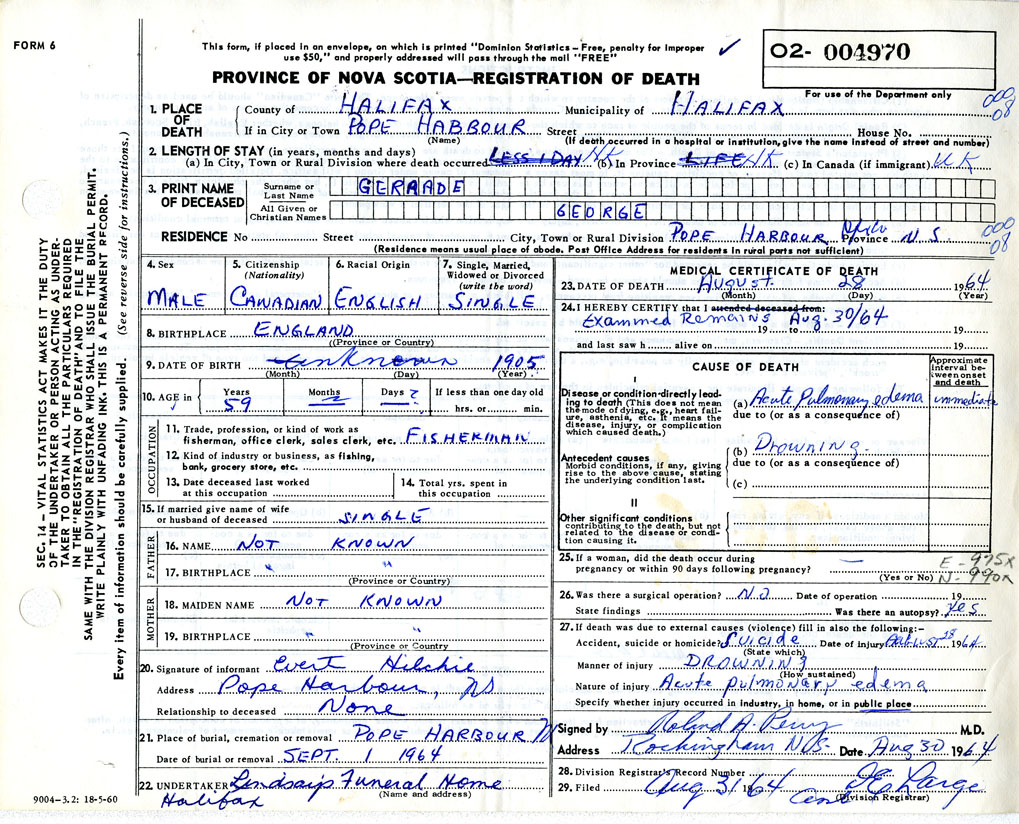 FORM 6
This form, if placed in an envelope, on which is printed "Dominion Statistics – Free, penalty for improper
use $50," and properly addressed will pass through the mail "FREE"
✓
O2- 004970
For use of the Department only
PROVINCE OF NOVA SCOTIA—REGISTRATION OF DEATH
000
08
SEC. 14 – VITAL STATISTICS ACT MAKES IT THE DUTY
OF THE UNDERTAKER OR PERSON ACTING AS UNDER-
TAKER TO OBTAIN ALL THE PARTICULARS REQUIRED
IN THE "REGISTRATION OF DEATH" AND TO FILE THE
SAME WITH THE DIVISION REGISTRAR WHO SHALL ISSUE THE BURIAL PERMIT.
WRITE PLAINLY WITH UNFADING INK. THIS IS A PERMANENT RECORD.
Every item of information should be carefully supplied. (See reverse side for instructions.)
1. PLACE OF DEATH County of HALIFAX Municipality of HALIFAX
If in City or Town POPE HABBOUR Street House No.
(Name) (If death occurred in a hospital or institution, give the name instead of street and number)
2. LENGTH OF STAY (in years, months and days)
(a) In City, Town or Rural Division where death occurred LESS 1 DAY NK (b) In Province LIFE NK (c) In Canada (if immigrant) U K
3. PRINT NAME OF DECEASED Surname or Last Name GERAADE
All Given or Christian Names GEORGE
RESIDENCE No Street City, Town or Rural Division POPE HARBOUR Province N S.
000
08
(Residence means usual place of abode. Post Office Address for residents in rural parts not sufficient)
4. Sex MALE
5. Citizenship (Nationality) CANADIAN
6. Racial Origin ENGLISH
7. Single, Married, Widowed or Divorced (write the word) SINGLE
8. BIRTHPLACE ENGLAND
(Province or Country)
9. DATE OF BIRTH Unknown 1905
(Month) (Day) (Year)
10. AGE in Years 59 Months ? Days ? If less than one day old hrs. or min.
OCCUPATION
11. Trade, profession, or kind of work as
fisherman, office clerk, sales clerk, etc. FISHERMAN
12. Kind of industry or business, as fishing,
bank, grocery store, etc.
13. Date deceased last worked at this occupation
14. Total yrs. spent in this occupation
15. If married give name of wife
or husband of deceased SINGLE
FATHER
16. NAME NOT KNOWN
17. BIRTHPLACE " "
(Province or Country)
MOTHER
18. MAIDEN NAME NOT KNOWN
19. BIRTHPLACE " "
(Province or Country)
20. Signature of informant Evert Hilchie
Address Pope Harbour, NS
Relationship to deceased None
21. Place of burial, cremation or removal POPE HARBOUR N
Date of burial or removal SEPT. 1 1964
22. UNDERTAKER Lindsay's Funeral Home
(Name and address)
Halifax
9004-3.2: 18-5-60
MEDICAL CERTIFICATE OF DEATH
23. DATE OF DEATH August. 28 1964
(Month) (Day) (Year)
24. I HEREBY CERTIFY that I attended deceased from:
Examined Remains Aug. 30/64
19 to 19
and last saw h alive on 19
CAUSE OF DEATH
Approximate interval between onset and death
I
Disease or condition directly leading to death (This does not mean the mode of dying, e.g., heart failure, asthenia, etc. It means the disease, injury, or complication which caused death.)
(a) Acute Pulmonary edema immediate
due to (or as a consequence of)
Antecedent causes
Morbid conditions, if any, giving rise to the above cause, stating the underlying condition last.
(b) Drowning.
due to (or as a consequence of)
(c)
II
Other significant conditions
contributing to the death, but not related to the disease or condition causing it.
25. If a woman, did the death occur during
pregnancy or within 90 days following pregnancy? —
(Yes or No)
E - 975X
N - 990X
26. Was there a surgical operation? NO Date of operation 19
State findings Was there an autopsy? Yes
27. If death was due to external causes (violence) fill in also the following:–
Accident, suicide or homicide? SUICIDE Date of injury AUGUST 28 1964
(State which)
Manner of injury DROWNING
(How sustained)
Nature of injury Acute pulmonary edema
Specify whether injury occurred in industry, in home, or in public place
Signed by Roland A. Perry M.D.
Address Rockingham N.S. Date Aug 30 1964
28. Division Registrar's Record Number
29. Filed Aug 31 1964 JE Large
(Division Registrar)